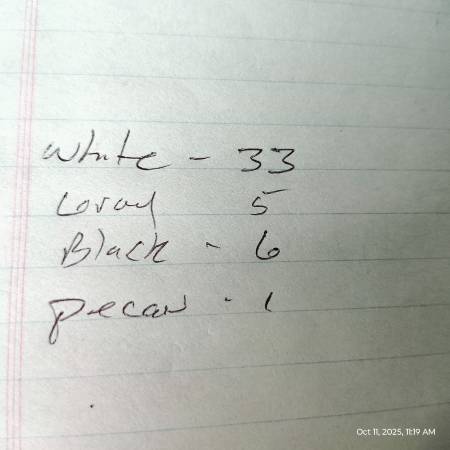 White - 33
Gray 5
Black - 6
pecan - 1
Oct 11, 2025, 11:19 AM